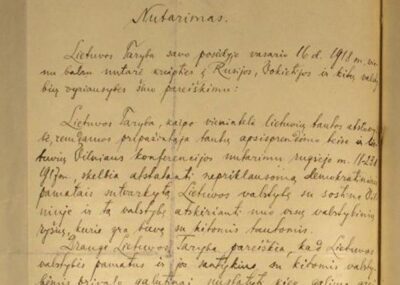 Nutarimas.
Lietuvos Taryba savo posėdyje vasario 16 d. 1918 m. vie
nu balsu nutarė kreiptis į Rusijos, Vokietijos ir kitų valsty
bių vyriausybes šiuo pareiškimu:
Lietuvos Taryba, kaipo vienintelė lietuvių tautos atstovy
bė, remdamos pripažintąja tautų apsisprendimo teise ir lie
tuvių Vilniaus konferencijos nutarimu rugsėjo m. 18-23 d.
1917 m., skelbia atstatanti nepriklausomą, demokratiniais
pamatais sutvarkytą Lietuvos valstybę su sostine Vil
niuje ir tą valstybę atskirianti nuo visų valstybinių
ryšių, kurie yra buvę su kitomis tautomis.
Drauge Lietuvos Taryba pareiškia, kad Lietuvos
valstybės pamatus ir jos santykius su kitomis valsty
bėmis privalo galutinai nustatyti kiek galima grei